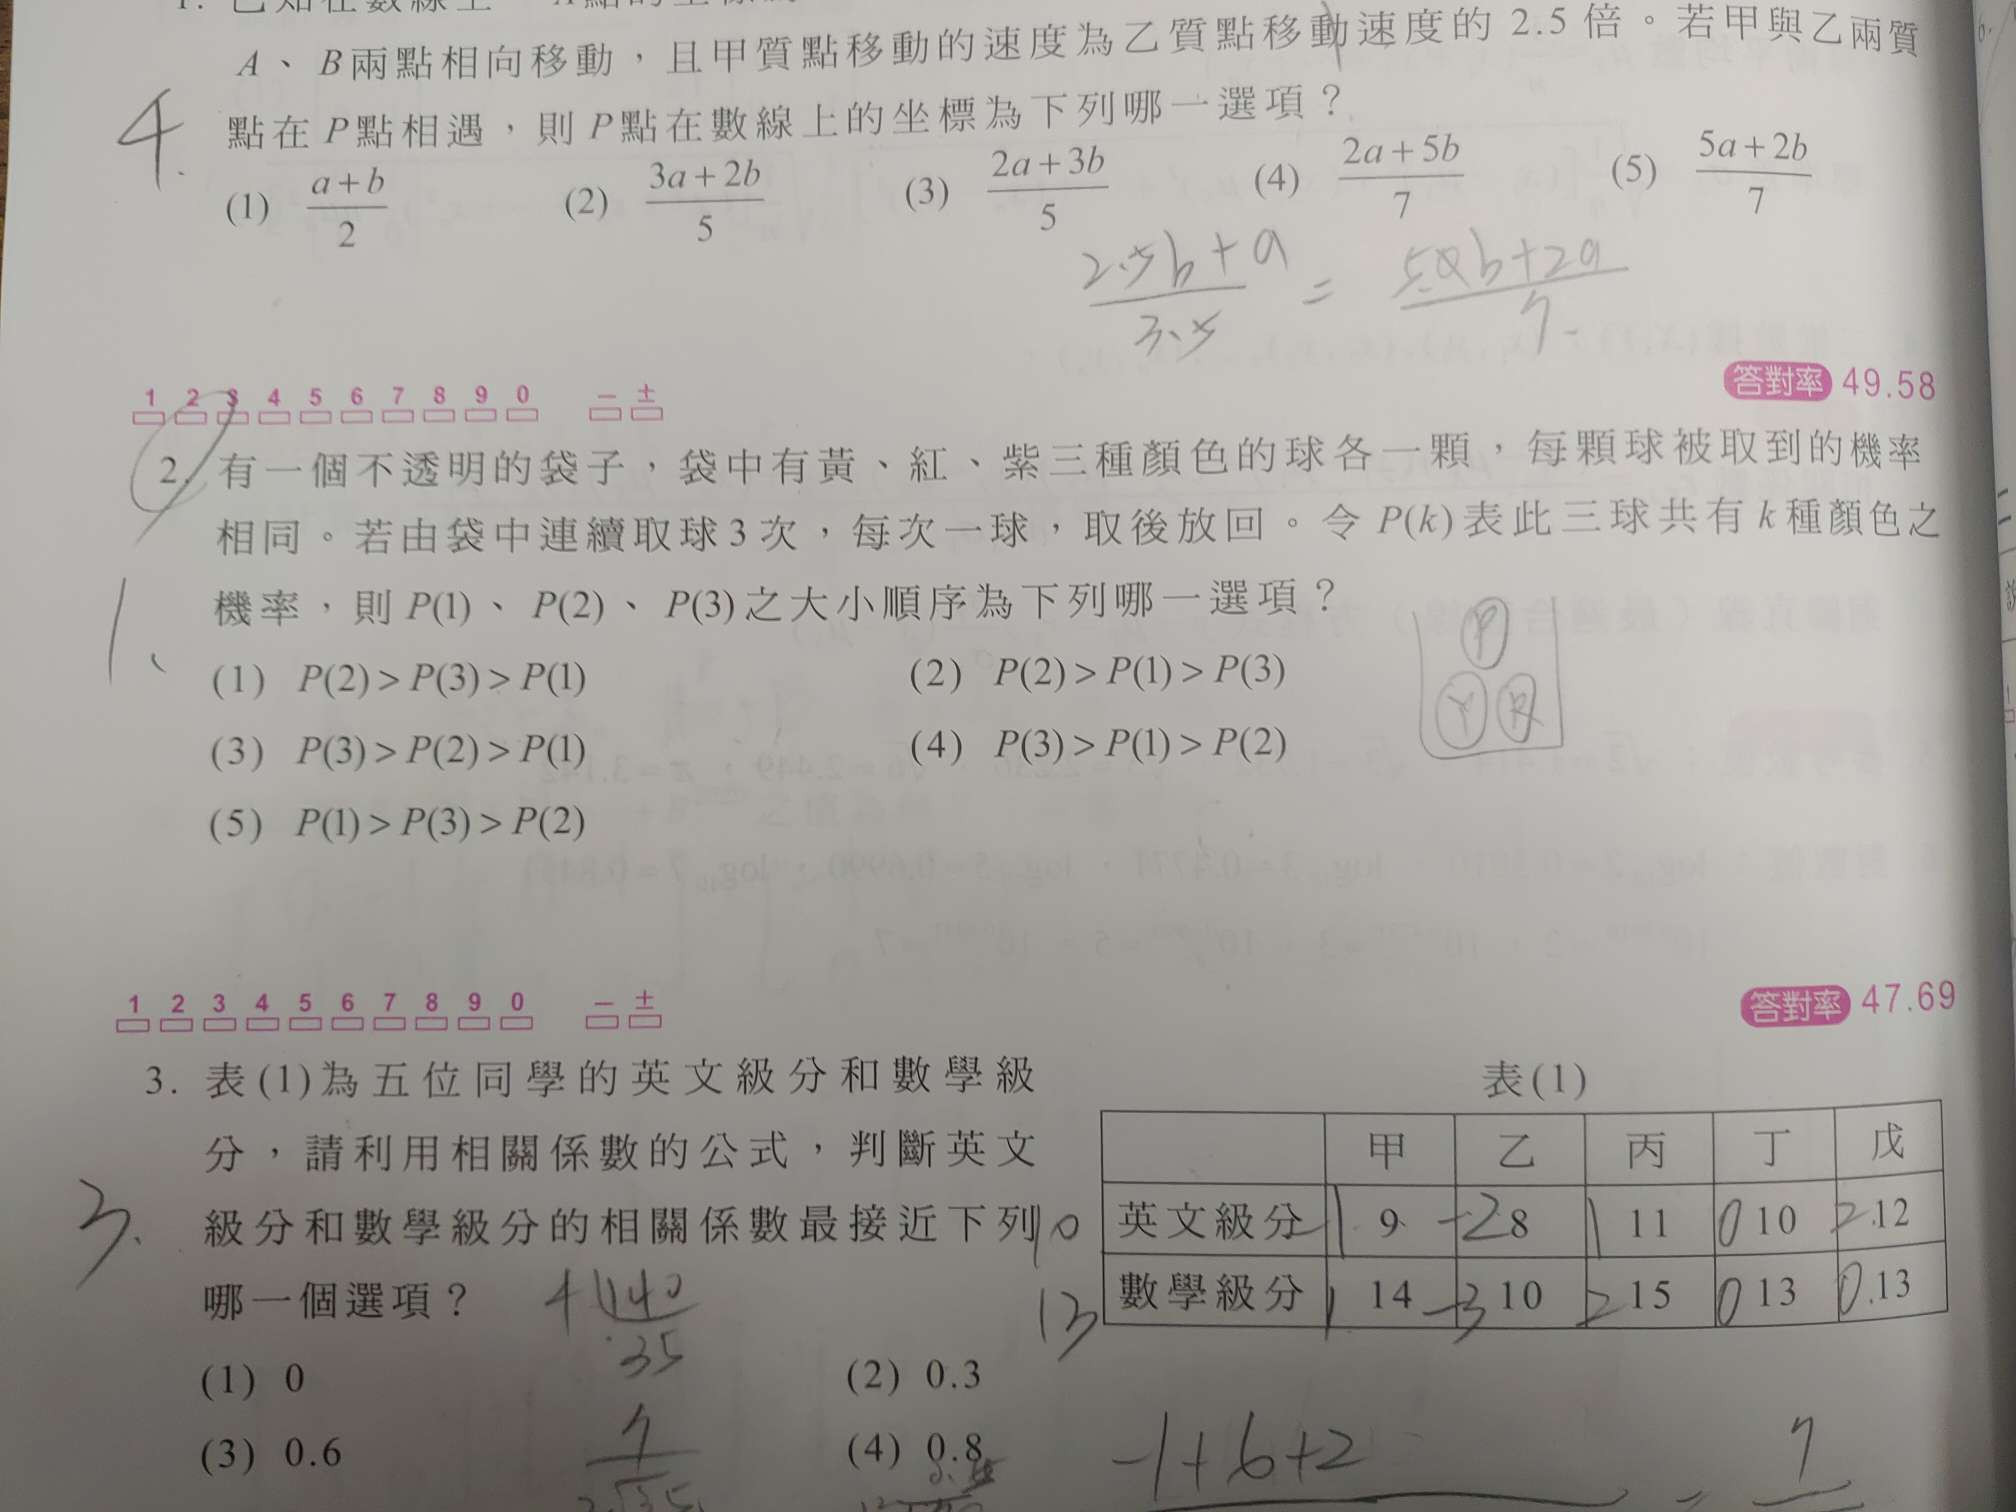 A、B兩點相向移動，且甲質點移動的速度為乙質點移動速度的 2.5 倍。若甲與乙兩質
點在 P點相遇，則 P點在數線上的坐標為下列哪一選項？
4.
(1) a+b/2 (2) 3a+2b/5 (3) 2a+3b/5 (4) 2a+5b/7 (5) 5a+2b/7
1 2 3 4 5 6 7 8 9 0 − ±
答對率 49.58
2. 有一個不透明的袋子，袋中有黃、紅、紫三種顏色的球各一顆，每顆球被取到的機率
相同。若由袋中連續取球3次，每次一球，取後放回。令 P(k)表此三球共有 k 種顏色之
機率，則 P(1)、P(2)、P(3)之大小順序為下列哪一選項？
1、
P
Y R
(1) P(2)>P(3)>P(1) (2) P(2)>P(1)>P(3)
(3) P(3)>P(2)>P(1) (4) P(3)>P(1)>P(2)
(5) P(1)>P(3)>P(2)
1 2 3 4 5 6 7 8 9 0 − ±
答對率 47.69
3. 表(1)為五位同學的英文級分和數學級
分，請利用相關係數的公式，判斷英文
級分和數學級分的相關係數最接近下列
哪一個選項？
3.
表(1)
甲 乙 丙 丁 戊
10 英文級分 -1 9 -2 8 1 11 0 10 2 12
13 數學級分 1 14 -3 10 2 15 0 13 0 13
(1) 0 (2) 0.3
(3) 0.6 (4) 0.8
-1+6+2
= 7